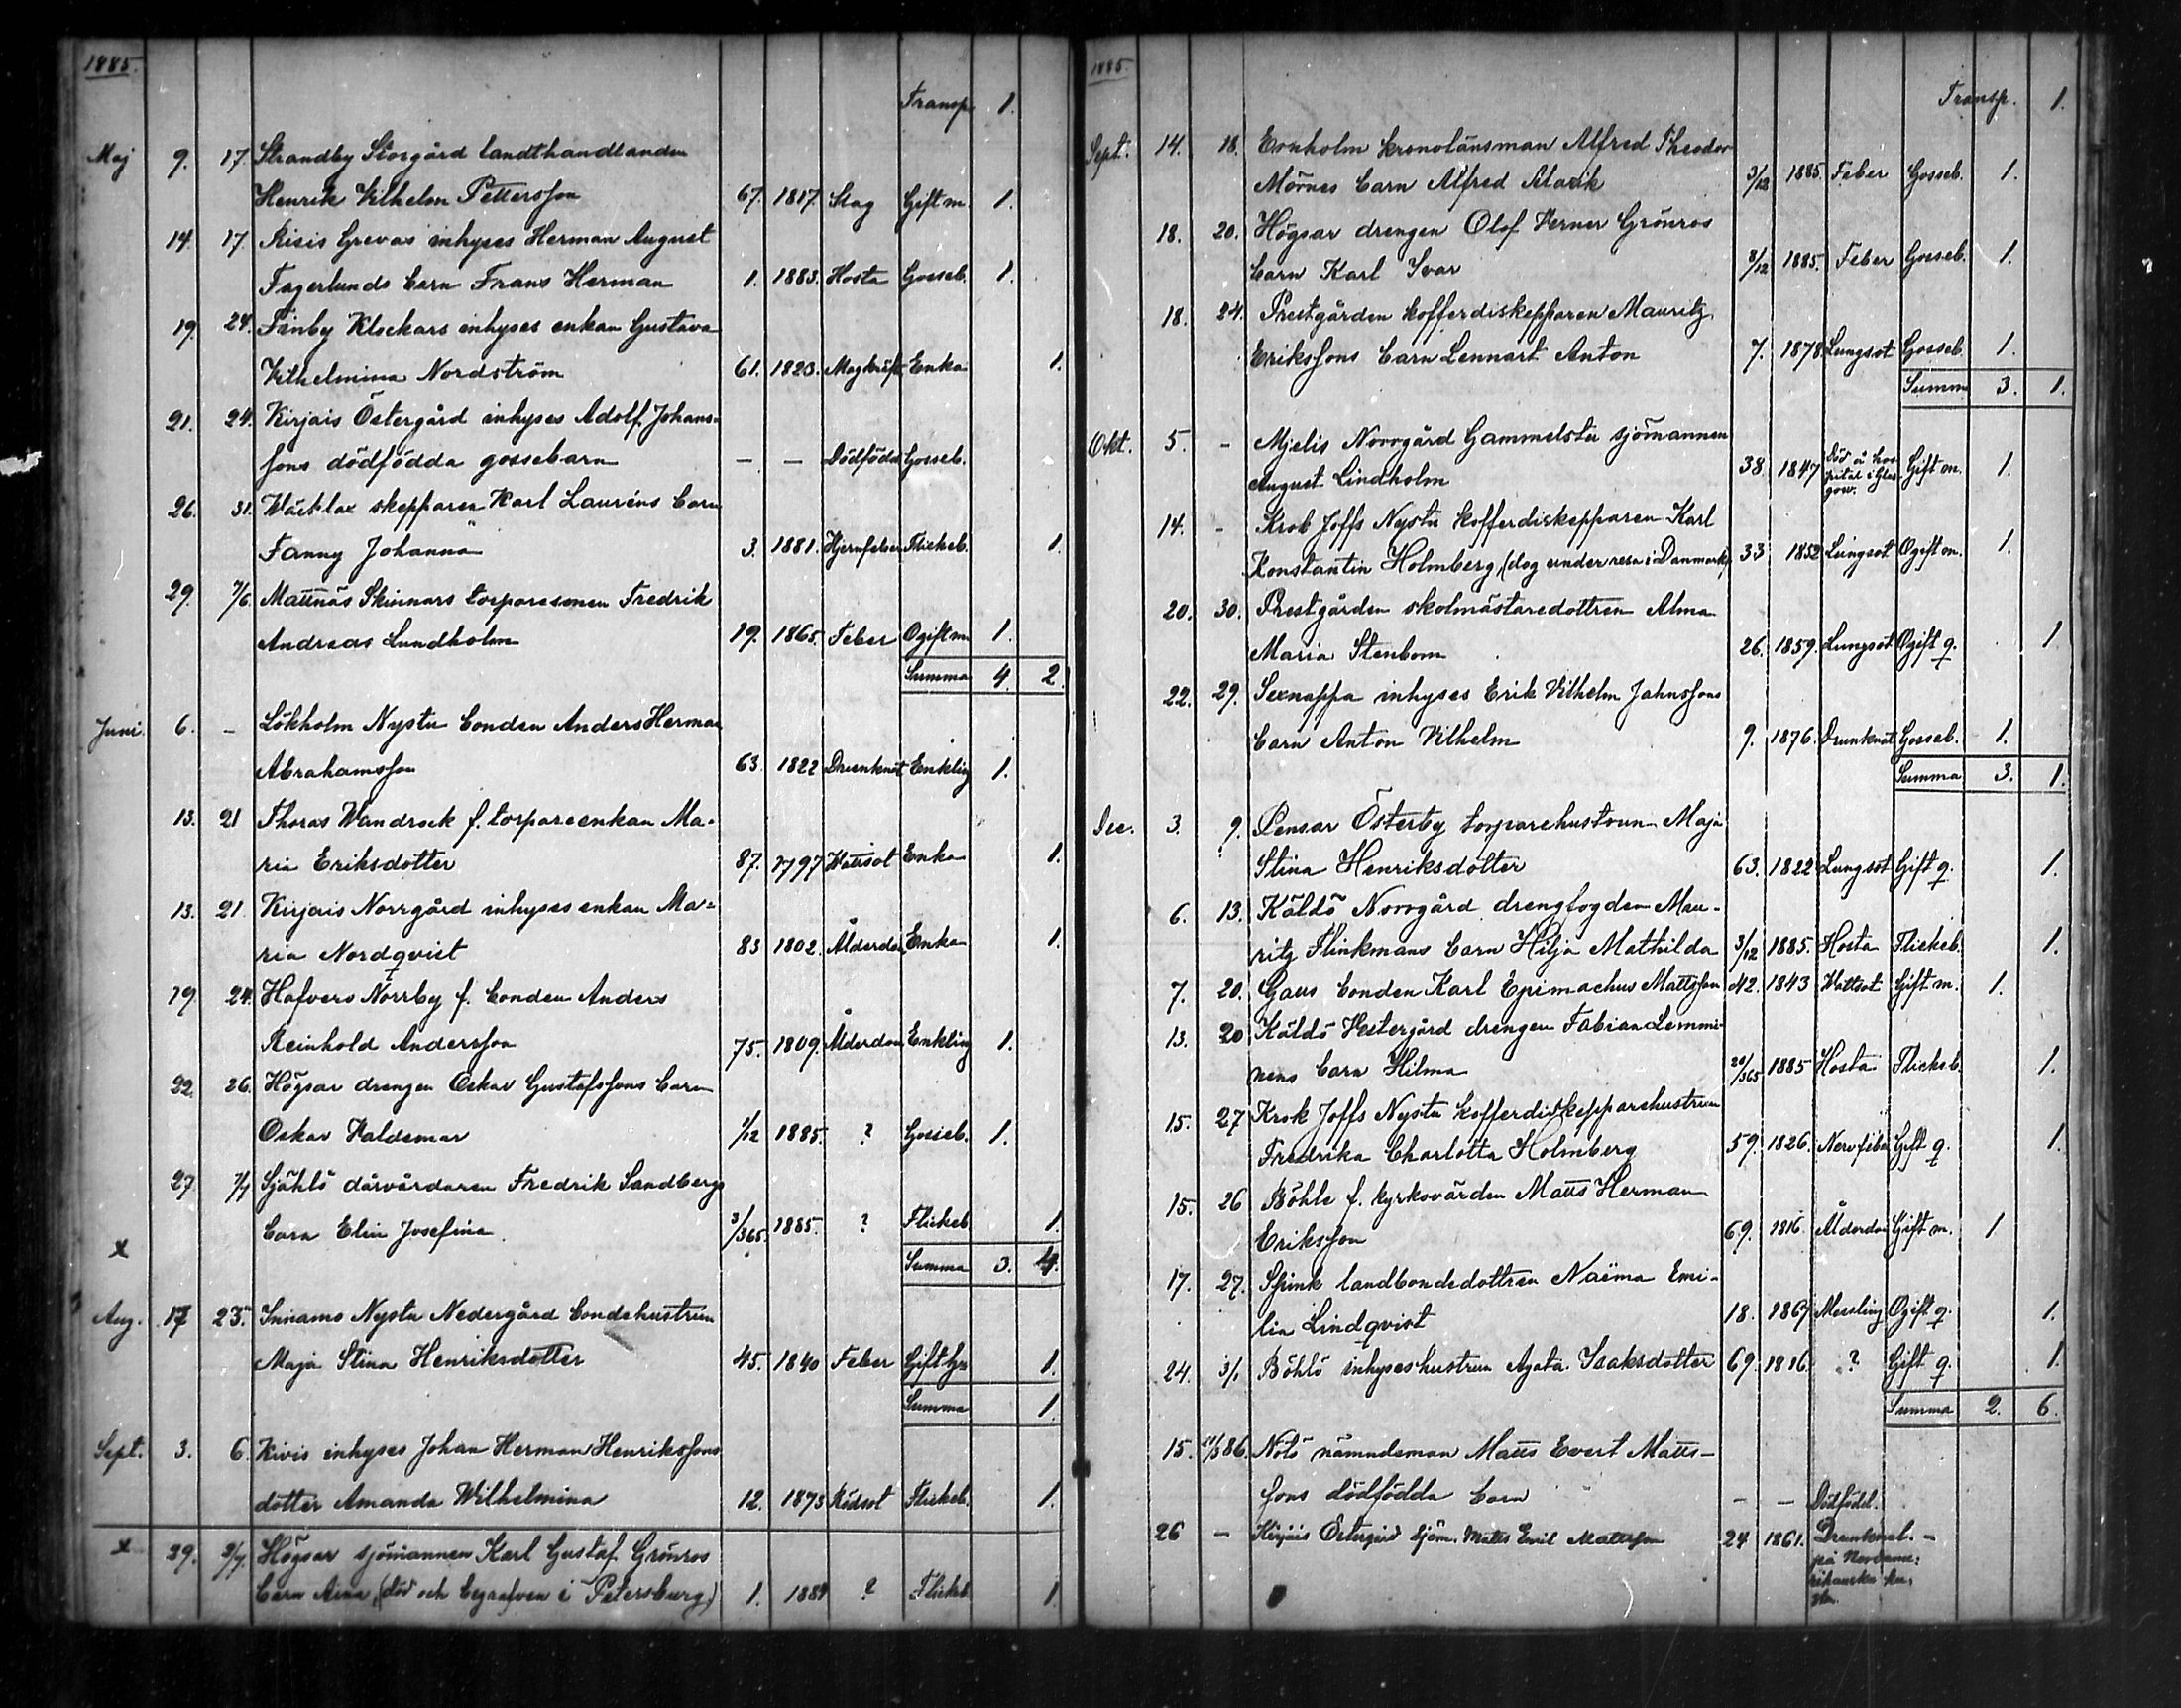 1885.
Transp. 1.
Maj 9. 17. Strandby Storgård landthandlanden
Henrik Vilhelm Pettersson 67. 1817. Slag Gift m. 1.
14. 17. Risis Grevas inhyses Herman August
Fagerlunds barn Frans Herman 1. 1883. Hosta Gosseb. 1.
19. 24. Finby Klockars inhyses enkan Gustava
Vilhelmina Nordström 61. 1823. Magkräft. Enka 1.
21. 24. Kirjais Östergård inhyses Adolf Johans-
sons dödfödda gossebarn — — Dödfödd Gosseb.
26. 31. skepparen Karl Lauréns barn
Fanny Johanna 3. 1881. Hjernfeber Flickeb. 1.
29. 7/6. Mattnäs Skinnars torparesonen Fredrik
Andreas Lundholm 19. 1865. Feber Ogift m. 1.
Summa 4. 2.
Juni. 6. — Lökholm Nystu bonden Anders Herman
Abrahamsson 63. 1822 Drunknat Enkling 1.
13. 21 Thoras Wandrock f. torpareenkan Ma-
ria Eriksdotter 87. 1797 Wattsot Enka 1.
13. 21. Kirjais Norrgård inhyses enkan Ma-
ria Nordqvist 83 1802. Ålderdom Enka 1.
19. 24. Hafvers Norrby f. bonden Anders
Reinhold Andersson 75. 1809. Ålderdom Enkling 1.
22. 26. Högsar drengen Oskar Gustafssons barn
Oskar Valdemar 1/12 1885. ? Gosseb. 1.
27 7/7 Själö dårvårdaren Fredrik Sandbergs
barn Elin Josefina 3/365. 1885. ? Flickeb. 1.
x Summa 3. 4.
Aug. 17 23. Innamo Nystu Nedergård bondehustrun
Maja Stina Henriksdotter 45. 1840 Feber Gift 1.
Summa 1.
Sept. 3. 6. Kivis inhyses Johan Herman Henrikssons
dotter Amanda Wilhelmina 12. 1873 Rödsot Flickeb. 1.
x 29. 2/7. Högsar sjömannen Karl Gustaf Grönros
barn Aina, (död och begrafven i Petersburg) 1. 1884 ? Flickeb. 1
1885.
Transp. 1.
Sept. 14. 18. kronolänsman Alfred Theodor
Mörnes barn Alfred Alarik 3/12 1885. Feber Gosseb. 1.
18. 20. Högsar drengen Olof Verner Grönros
barn Karl Ivar 8/12 1885. Feber Gosseb. 1.
18. 24. Prestgården kofferdiskepparen Mauritz
Erikssons barn Lennart Anton 7. 1878 Lungsot Gosseb. 1.
Summa 3. 1.
Okt. 5. — Mjelis Norrgård Gammelstu sjömannen
August Lindholm 38. 1847 Död å hos-
pital i Glas-
gow. Gift m. 1.
14. — Krok Joffs Nystu kofferdiskepparen Karl
Konstantin Holmberg, (dog under resa i Danmark) 33 1852 Lungsot Ogift m. 1.
20. 30. Prestgården skolmästaredottren Alma
Maria Stenbom 26. 1859. Lungsot Ogift q. 1
22. 29. Sexnappa inhyses Erik Vilhelm Jahnssons
barn Anton Vilhelm 9. 1876. Drunknat Gosseb. 1.
Summa 3. 1.
Dec. 3. 9. Pensar Österby torparehustrun Maja
Stina Henriksdotter 63. 1822 Lungsot Gift q. 1.
6. 13. Käldö Norrgård drengfogden Mau-
ritz Flinkmans barn Hilja Mathilda 3/12 1885. Hosta Flickeb. 1.
7. 20. Gaus bonden Karl Epimachus Mattsson 42. 1843 Wattsot Gift m. 1.
13. 20 Käldö Vestergård drengen Fabian Lemmi-
nens barn Hilma 20/365 1885 Hosta Flickeb. 1.
15. 27 Krok Joffs Nystu kofferdiskepparehustrun
Fredrika Charlotta Holmberg 59. 1826. Nervfeber Gift q. 1.
15. 26 Böhle f. kyrkovärden Matts Herman
Eriksson 69. 1816. Ålderdom Gift m. 1
17. 27. Spink landbondedottren Naëma Emi-
lia Lindqvist 18. 1867 Messling Ogift q. 1.
24. 3/1 Böhlö inhyseshustrun Agata Isaksdotter 69. 1816. ? Gift q. 1.
Summa 2. 6.
15. 86. Nötö nämndeman Matts Evert Matts-
sons dödfödda barn — — Dödfödd.
26 — Kirjais Östergård sjöm. Matts Emil Mattsson 24 1861. Drunknat
på Nordame-
rikanska ku-
sten.